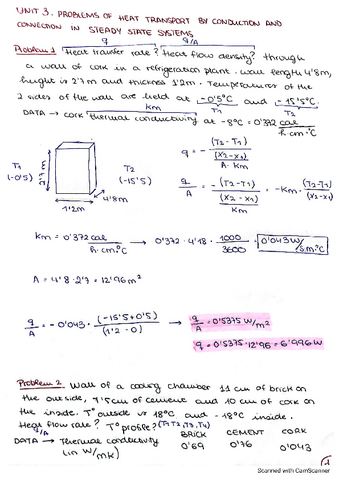 UNIT 3. PROBLEMS OF HEAT TRANSPORT BY CONDUCTION AND
CONVECTION IN STEADY STATE SYSTEMS
q q/A
Problem 1 Heat transfer rate? Heat flow density? through
a wall of cork in a refrigeration plant. Wall length 4'8m,
height is 2'7m and thickness 1'2m. Temperatures of the
2 sides of the wall are held at -0'5°C and -15'5°C
km T2
DATA → cork thermal conductivity at -8°C = 0'372 cal
h·cm·°C
T1
(-0'5)
2'7m
1'2m
4'8m
T2
(-15'5)
q = - (T2-T1)
(x2-x1)
A·km
q/A = - (T2-T1) = -km · (T2-T1)
(x2-x1) (x2-x1)
km
km = 0'372 cal → 0'372 · 4'18 · 1000 = 0'043 W/
h·cm·°C 3600 s·m·°C
A = 4'8·2'7 = 12'96 m²
q/A = -0'043 · (-15'5+0'5) → q/A = 0'5375 W/m²
(1'2-0)
q = 0'5375·12'96 = 6'996W
Problem 2. Wall of a cooling chamber 11 cm of brick on
the outside, 7'5cm of cement and 10 cm of cork on
the inside. T° outside is 18°C and -18°C inside.
Heat flow rate? T° profile? (T1, T2, T3, T4)
q/A BRICK CEMENT CORK
DATA → Thermal conductivity 0'69 0'76 0'043
(in W/mK)
1
Scanned with CamScanner